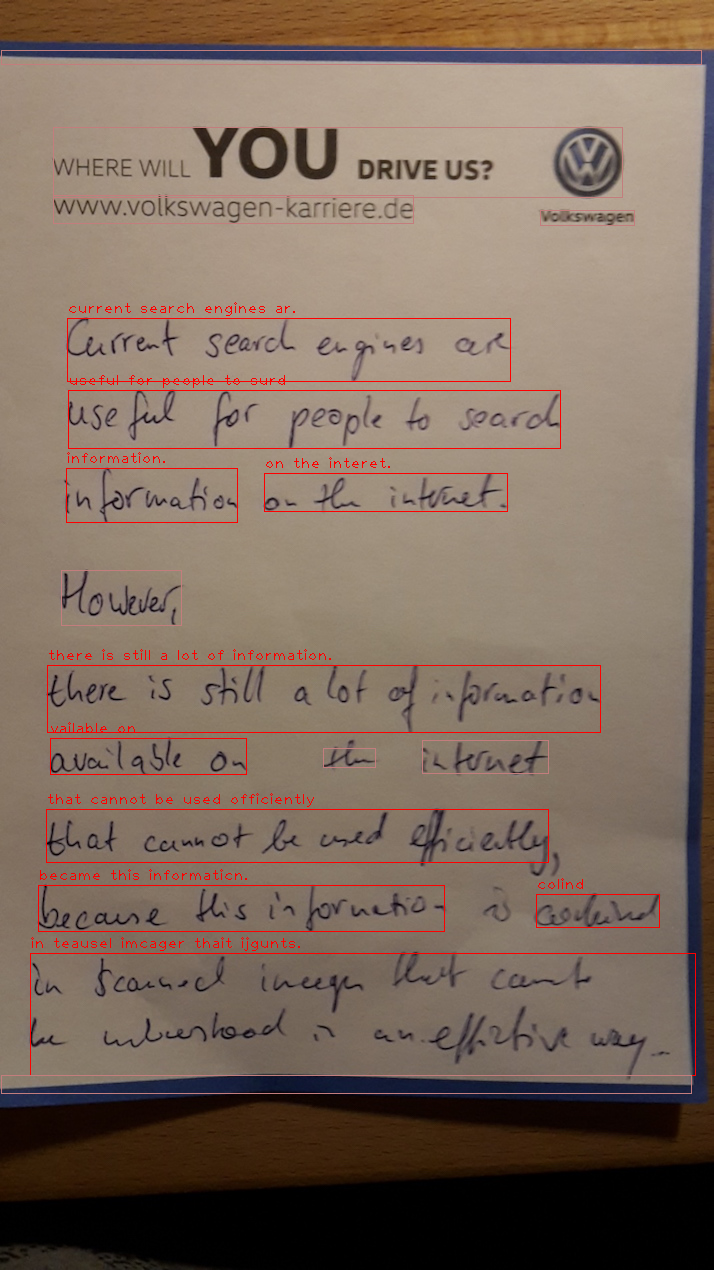 WHERE WILL YOU DRIVE US?
www.volkswagen-karriere.de
Volkswagen
current search engines ar.
Current search engines are
useful for people to surd
useful for people to search
information. on the interet.
information on the internet.
However,
there is still a lot of information.
there is still a lot of information
vailable on
available on the internet
that cannot be used officiently
that cannot be used efficiently,
became this informaticn. colind
because this information is contained
in teausel imcager thait ijgunts.
in scanned images that cannot
be understood in an effective way.